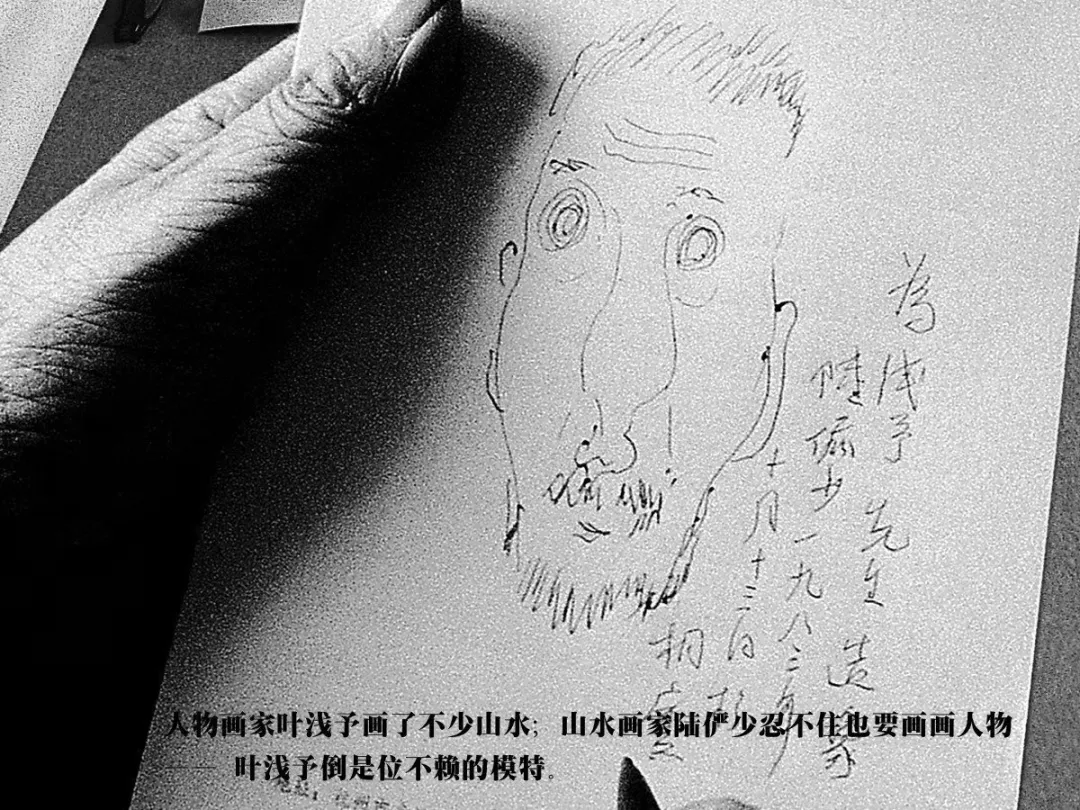 為浅予先生造象
陸儼少一九八二年
十月十三日於
桐廬
人物画家叶浅予画了不少山水；山水画家陆俨少忍不住也要画画人物
—— 叶浅予倒是位不赖的模特。
地址：杭州市